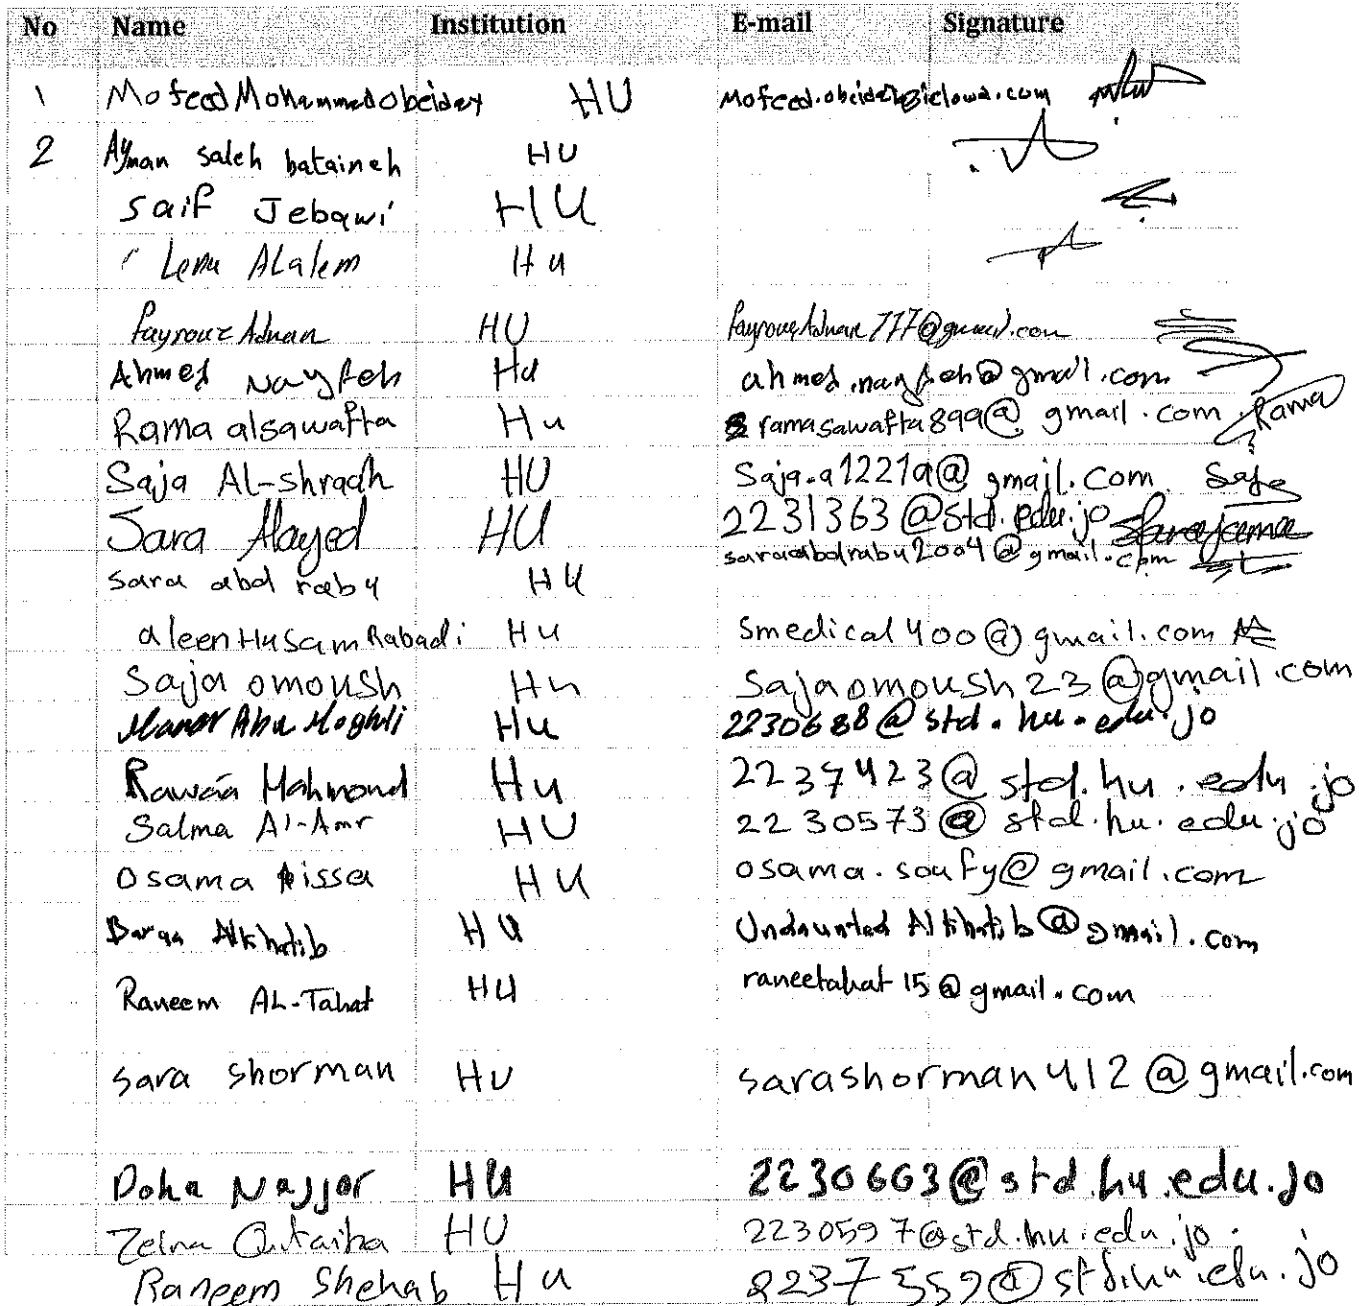 No Name Institution E-mail Signature
1 Mofeed Mohammed obeidat HU Mofeed.obeidat@icloud.com
2 Ayman saleh bataineh HU
Saif Jebawi HU
Lema Alalem Hu
fayrouz Adnan HU fayrouzAdnan777@gmail.com
Ahmed Nayfeh Hu ahmed.nayfeh@gmail.com
Rama alsawafta Hu ramasawafta899@gmail.com Rama
Saja AL-shradh HU Saja.a1221a@gmail.com Saja
Sara Alayed HU 2231363@std.edu.jo
sara abd raby HU saraabdraby2004@gmail.com
aleen Husam Rabadi Hu smedical400@gmail.com
Saja omoush Hu Sajaomoush23@gmail.com
Abu Hu 2230688@std.hu.edu.jo
Rawan Mahmoud Hu 2237423@std.hu.edu.jo
Salma Al-Amr HU 2230573@std.hu.edu.jo
Osama aissa HU osama.soufy@gmail.com
Baraa Alkhatib HU Undaunted Alkhatib@gmail.com
Raneem AL-Tahat HU raneetahat15@gmail.com
sara shorman HU sarashorman412@gmail.com
Doha Najjar HU 2230663@std.hu.edu.jo
Qutaiba HU 2230597@std.hu.edu.jo
Raneem Shehab Hu 2237559@std.hu.edu.jo